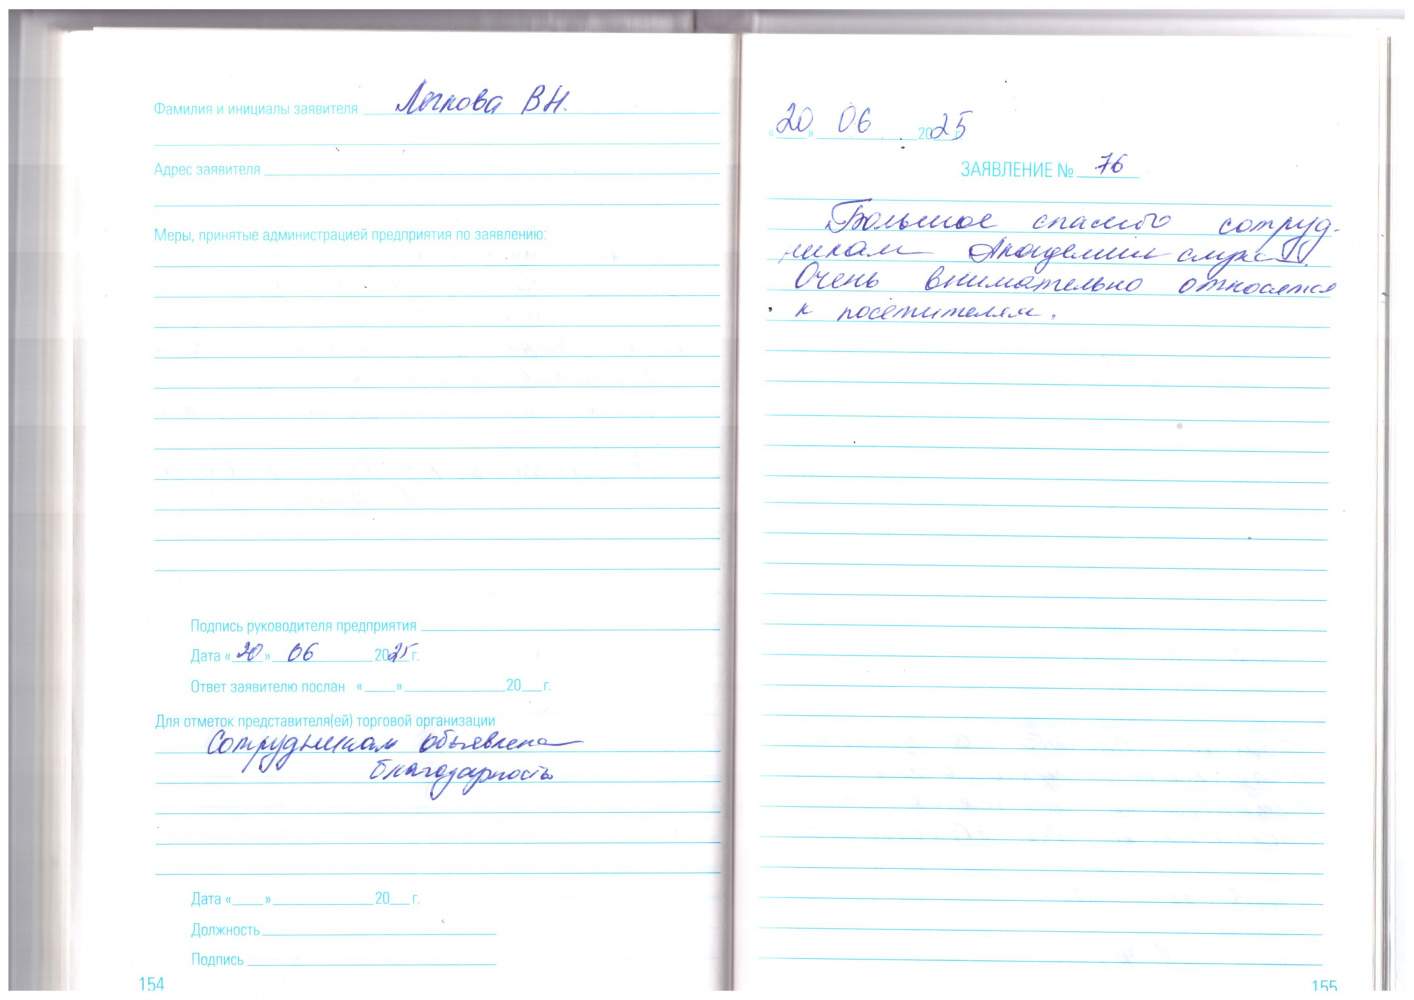 Фамилия и инициалы заявителя Легкова В Н.
Адрес заявителя
Меры, принятые администрацией предприятия по заявлению:
Подпись руководителя предприятия
Дата «20» 06 2025 г.
Ответ заявителю послан « » 20 г.
Для отметок представителя(ей) торговой организации
Сотрудникам объявлена
благодарность
Дата « » 20 г.
Должность
Подпись
154
«20» 06 2025
ЗАЯВЛЕНИЕ № 76
Большое спасибо сотруд-
никам Академии слуха!
Очень внимательно относятся
к посетителям.
155